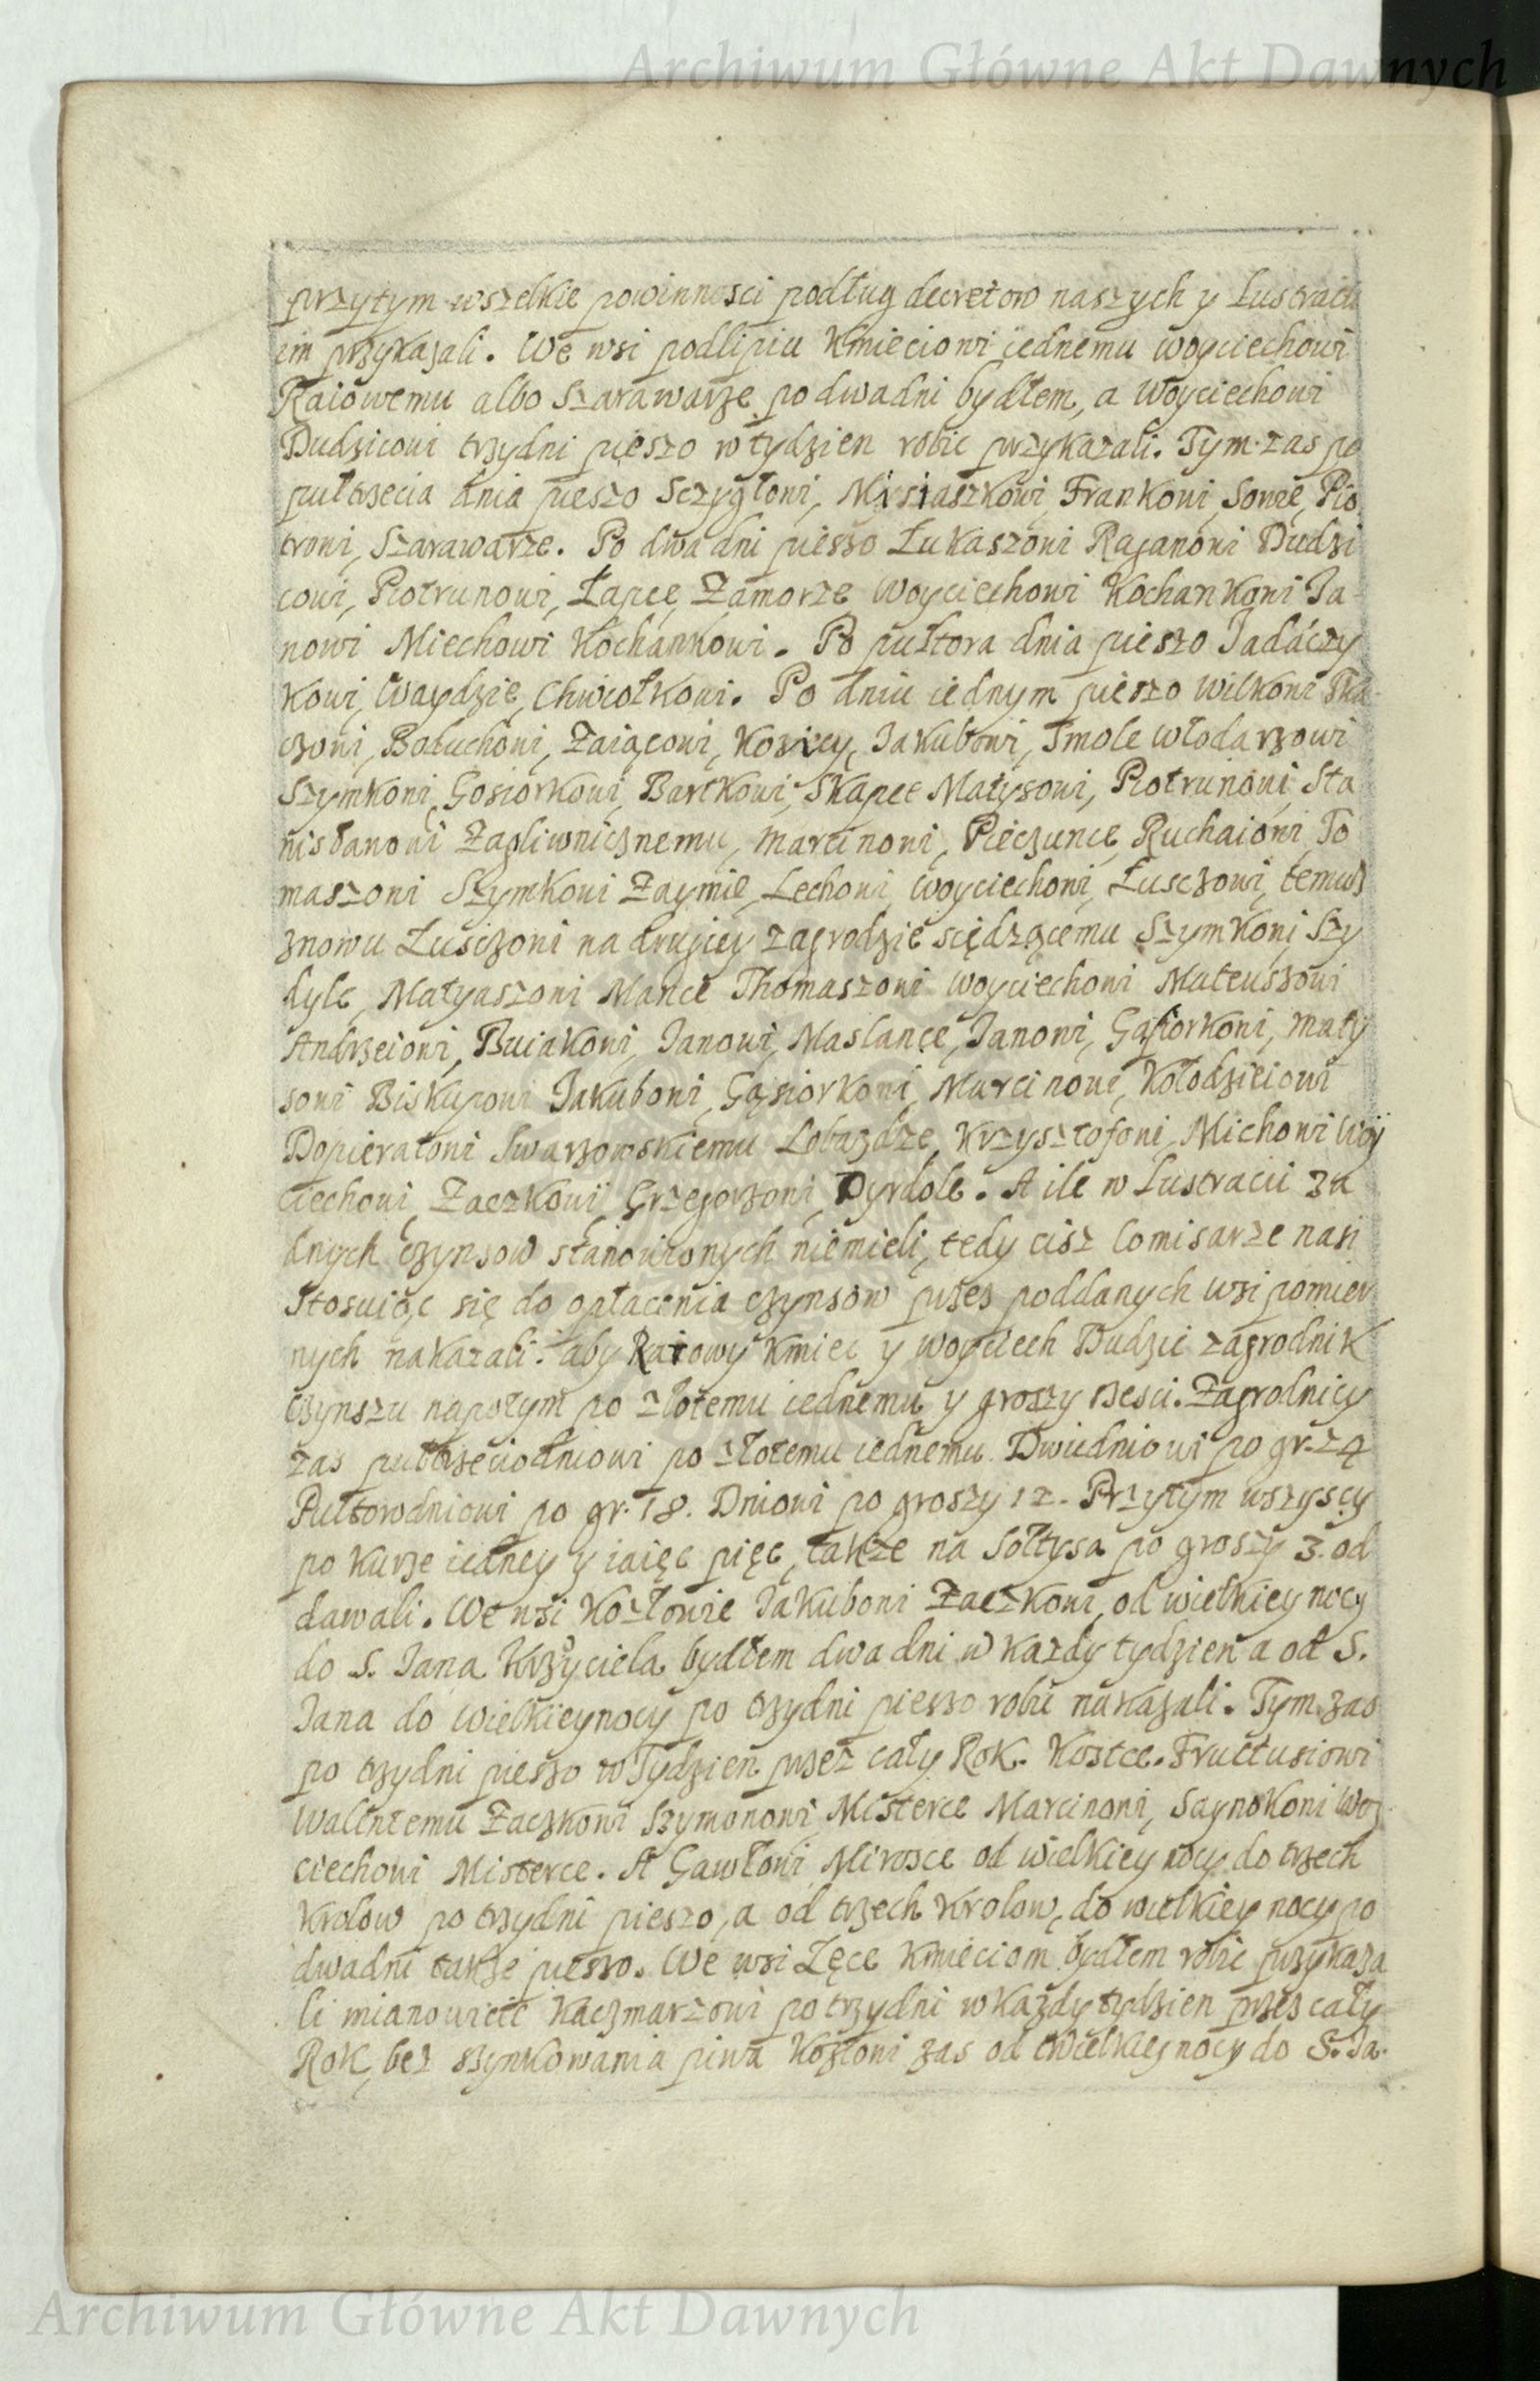 Archiwum Główne Akt Dawnych
przytym wszelkie powinnosci podług decretow naszych y Lustracii
im przykazali. We wsi podlipiu Kmieciowi iednemu woyciechowi
Raiowemu albo Szarawarze po dwadni bydłem, a Woyciechowi
Dudzicowi trzydni pieszo w tydzien robic przykazali. Tym zas po
pułtrzecia dnia pieszo Sczygłowi, Misiaszkowi, Frankowi, Sowie, Pio
trowi, Szarawarze. Po dwadni pieszo Łukaszowi Raganowi Dudzi
cowi, Piotrunowi, Łapce, Zamorze Woyciechowi Kochankowi Ia
nowi Miechowi Kochankowi. Po pułtora dnia pieszo Iadaczy
kowi, Waydzie, Chwiołkowi. Po dniu iednym pieszo Wilkowi Tka
czowi, Bałuchowi, Zaiącowi, Kozicy, Iakubowi, Smole włodarzowi
Szymkowi, Gosiorkowi, Bartkowi, Skapce Matysowi, Piotrunowi, Sta
nisławowi Zagliwnicznemu, Marcinowi, Pieczunce, Ruchaiowi, To
maszowi Szymkowi Zaymie, Lechowi, woyciechowi, Łusczowi, temusz
znowu Łusczowi na drugiey zagrodzie siędzącemu Szymkowi Szy
dyle, Matyaszowi Mance Thomaszowi Woyciechowi Mateuszowi
Andrzeiowi, Buiakowi, Ianowi, Maslance, Ianowi, Gąsiorkowi, Maty
sowi Biskupowi Iakubowi, Gąsiorkowi, Marcinowi, Kołodzieiowi
Dopierałowi Swarzowskiemu Lobazdze, Krzysztofowi, Michowi Woy
ciechowi, Zaczkowi Grzegorzowi, Dyrdole. A ile w Lustracii ża
dnych czynszow stanowionych niemieli, tedy cisz Comisarze nasi
stosuiąc się do opłacenia czynszow przez poddanych wsi pomien
nych nakazali: aby Raiowy Kmiec y woyciech Dudzic zagrodnik
czynszu napołym po złotemu iednemu y groszy szesci. Zagrodnicy
zas pułtrzeciodniowi po złotemu iednemu Dwudniowi po gr. 24
Pułtorodniowi po gr. 18. Dniowi po groszy 12. Przytym wszyscy
po kurze iedney y iaięc pięc, także na Sołtysa po groszy 3. od
dawali. We wsi Kozłowie Iakubowi Zaczkowi, od wielkiey nocy
do S. Iana Krzyciela bydłem dwa dni w każdy tydzien a od S.
Iana do Wielkieynocy po trzydni pieszo robic nakazali. Tym zas
po trzydni pieszo w Tydzien przez cały Rok. Kostce. Fructusiowi
Walentemu Zaczkowi Szymonowi, Misterce Marcinowi, Saynokowi Woy
ciechowi Misterce. A Gawłowi Mirosce od wielkiey nocy do trzech
Krolow po trzydni pieszo, a od trzech Krolow, do wielkiey nocy po
dwadni także pieszo. We wsi Zęce Kmieciom bydłem robic przykaza
li mianowicie Kaczmarzowi po trzydni w każdy tydzien przez cały
Rok, bez szynkowania piwa Kozłowi zas od Wielkiey nocy do S. Ia-
Archiwum Główne Akt Dawnych